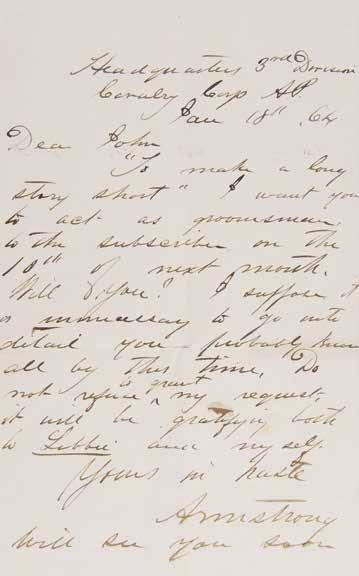 Headquarters 3rd Division
Cavalry Corp A.P.
Jan 18th, 64
Dear John
"To make a long
story short" I want you
to act as groomsman
to the subscriber on the
10th of next month.
Will you? I suppose it
is unnecessary to go into
detail you probably know
all by this time. Do
not refuse to grant my request,
it will be gratifying both
to Libbie and myself.
Yours in haste
Armstrong
Will see you soon